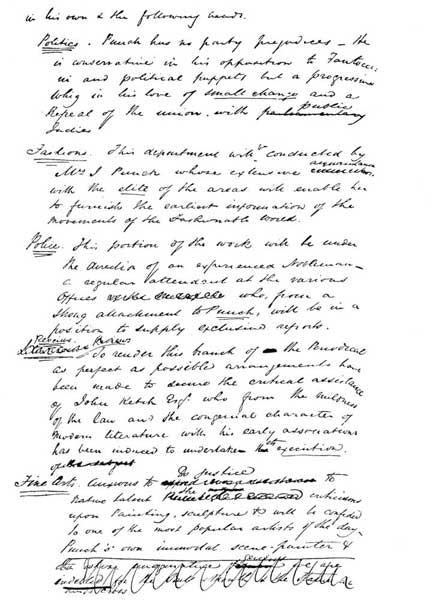 in his own & the following heads.
Politics. Punch has no party prejudices – He
is conservative in his opposition to Fantocci
ni and political puppets but a progressive
Whig in his love of small change and a
Repeal of the union. with public
Ladies
Fashions. This department will be conducted by
Mrs J Punch whose extensive acquaintance
with the elite of the areas will enable her
to furnish the earliest information of the
movements of the Fashionable World.
Police. This portion of the work will be under
the direction of an experienced Nobleman –
a regular attendant at the various
Offices who, from a
strong attachment to Punch, will be in a
position to supply exclusive reports.
Reviews.
To render this branch of the Periodical
as perfect as possible arrangements have
been made to secure the critical assistance
of John Ketch Esqr. who from the mildness
of the law and the congenial character of
modern literature with his early associations
has been induced to undertake its execution.
Fine Arts. Anxious to do justice to
native talent the criticisms
upon Painting, Sculpture &c will be confided
to one of the most popular artists of the day–
Punch's own immortal scene-painter &